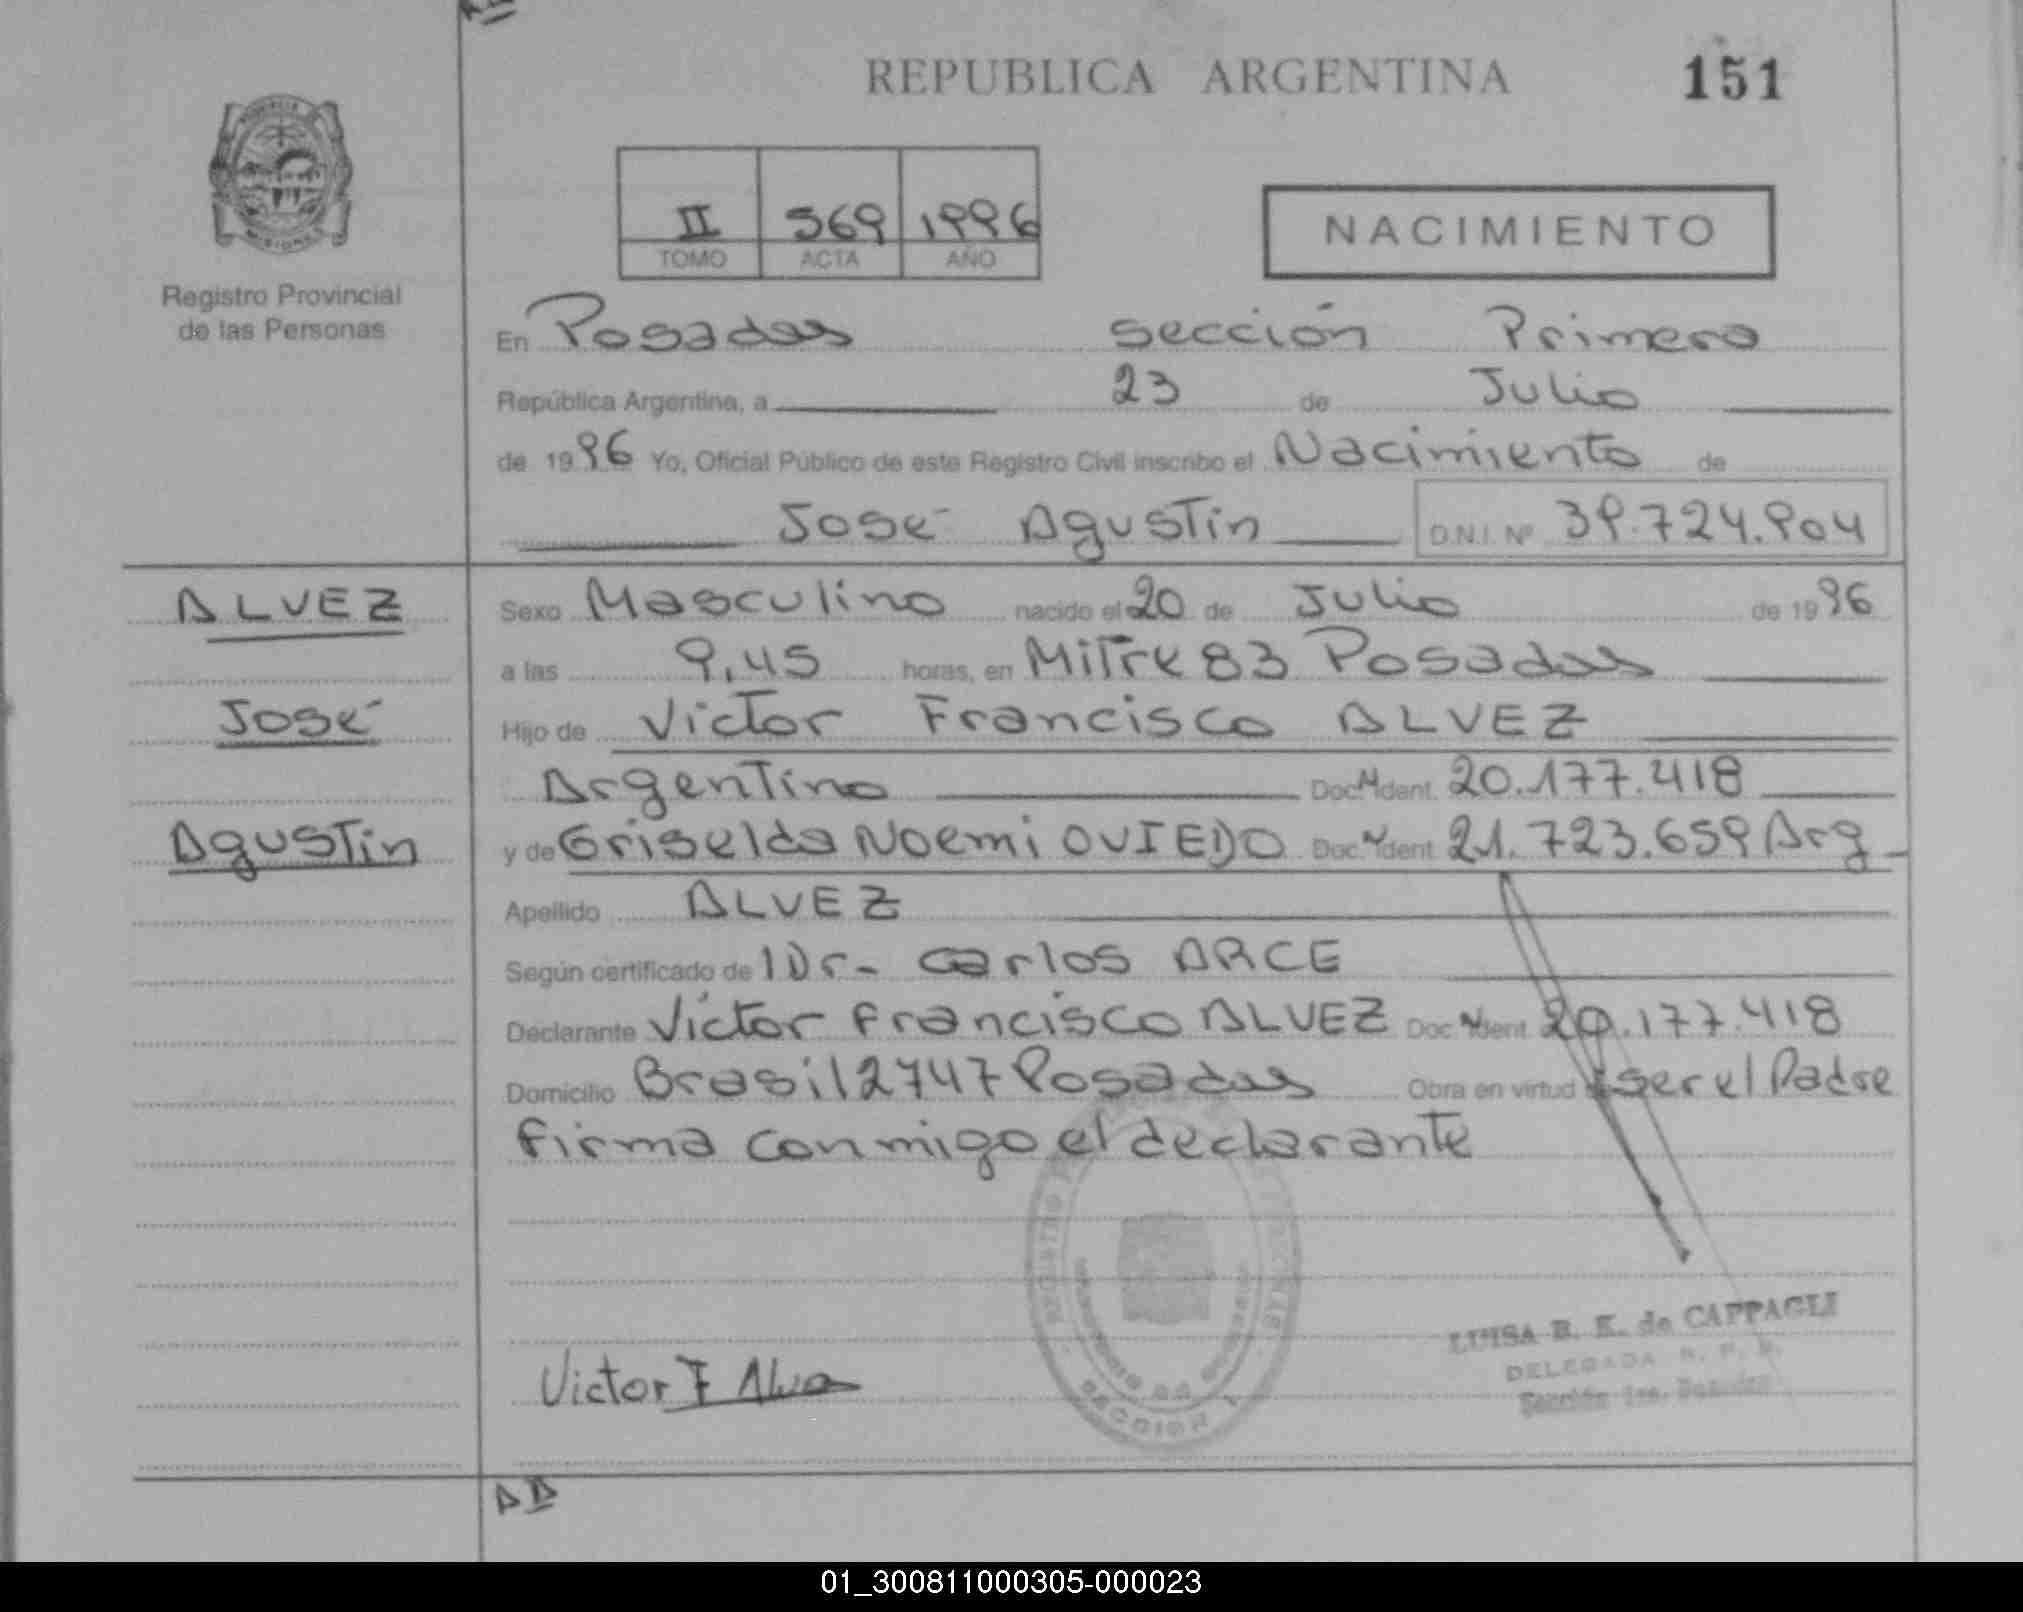 REPUBLICA ARGENTINA 151
II 569 1996
TOMO ACTA AÑO
NACIMIENTO
Registro Provincial
de las Personas
En Posadas sección Primera
República Argentina, a 23 de Julio
de 1996 Yo, Oficial Público de este Registro Civil inscribo el Nacimiento de
José Agustin D.N.I. Nº 39.724.904
ALVEZ
José
Agustin
Sexo Masculino nacido el 20 de Julio de 1996
a las 9,45 horas, en Mitre 83 Posadas
Hijo de Victor Francisco ALVEZ
Argentino Doc. Ident. 20.177.418
y de Griselda Noemi OVIEDO Doc. Ident 21.723.659 Arg
Apellido ALVEZ
Según certificado de Dr. Carlos ARCE
Declarante Victor Francisco ALVEZ Doc. Ident 20.177.418
Domicilio Brasil 2747 Posadas Obra en virtud ser el Padre
firma conmigo el declarante
LUISA B. K. de CAPPAGLI
DELEGADA R. P. P.
Sección 1ra. Posadas
Victor F Alvez
SECCION 1
01_300811000305-000023